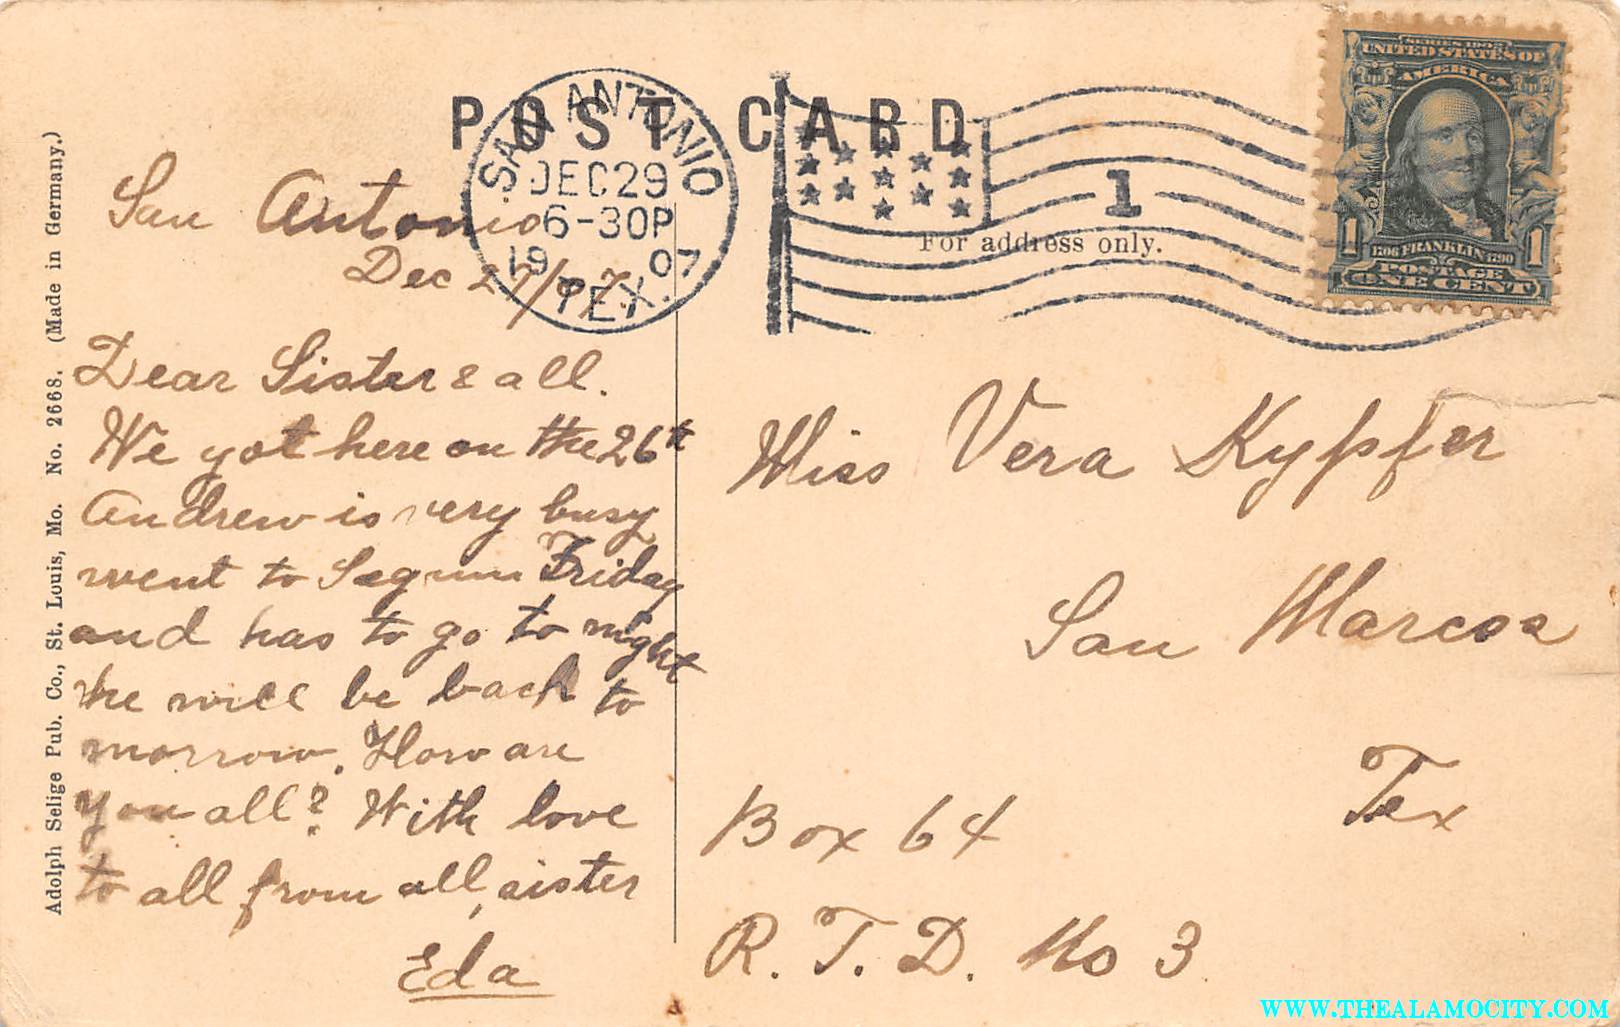 POST CARD
SAN ANTONIO
DEC 29
6-30P
1907
TEX.
1
For address only.
SERIES 1902
UNITED STATES OF
AMERICA
1706 FRANKLIN 1790
1 1
POSTAGE
ONE CENT
San Antonio
Dec 27/07.
Dear Sister & all.
We got here on the 26th
Andrew is very busy
went to Seguin Friday
and has to go to night
he will be back to
morrow. How are
you all? With love
to all from all, sister
Eda
Miss Vera Kypfer
San Marcos
Tex
Box 64
R. F. D. No 3
Adolph Selige Pub. Co., St. Louis, Mo. No. 2668. (Made in Germany.)
WWW.THEALAMOCITY.COM